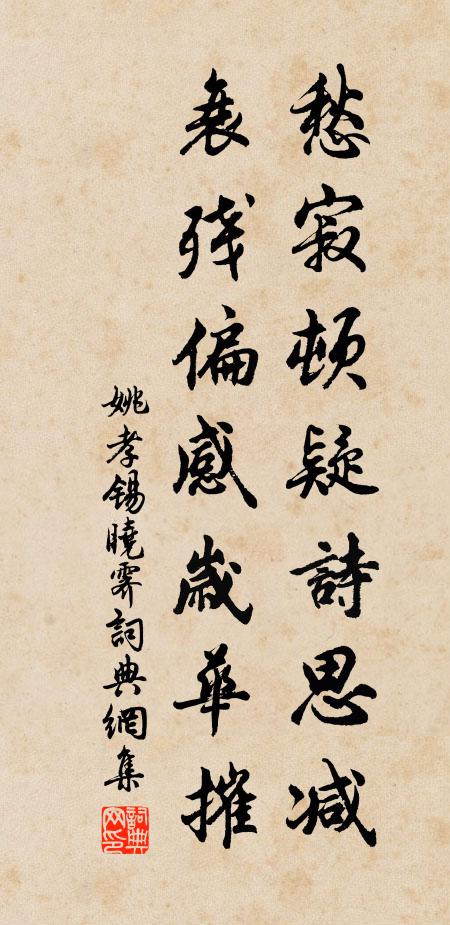 愁寂頓疑詩思减
衰残偏感歲華摧
姚孝錫曉霽詞典網集
詞典網印